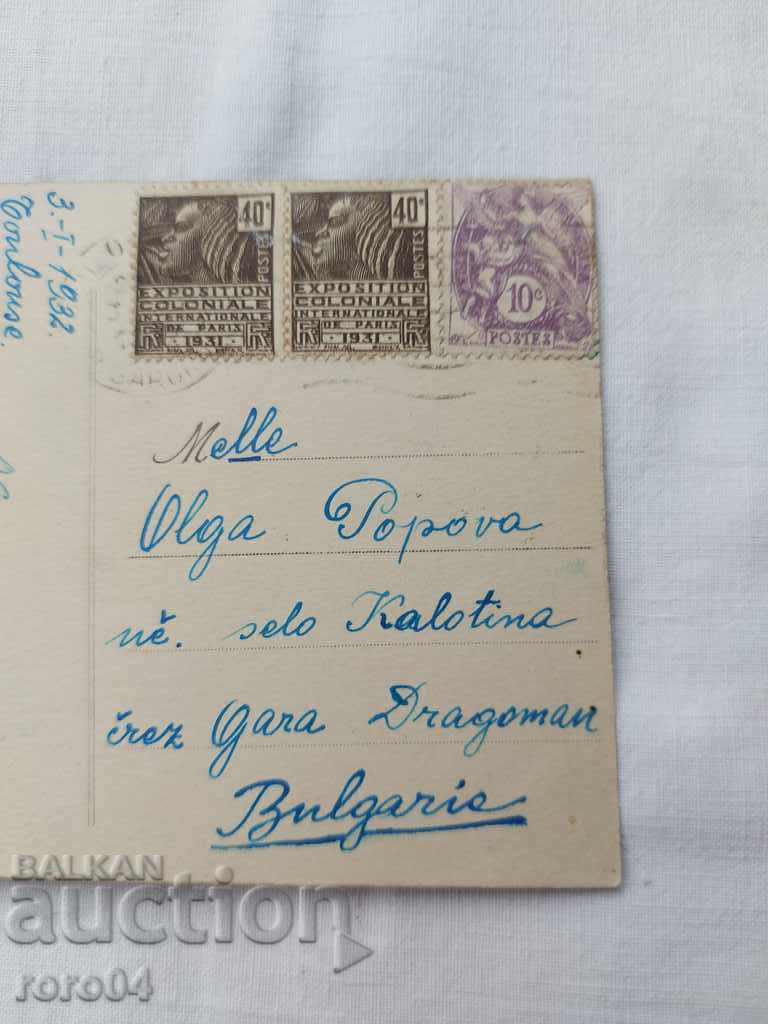 3.-I-1932.
Toulouse.
40c
POSTES
EXPOSITION
COLONIALE
INTERNATIONALE
DE PARIS
1931
40c
POSTES
EXPOSITION
COLONIALE
INTERNATIONALE
DE PARIS
1931
10c
POSTES
Melle
Olga Popova
uč. selo Kalotina
črez Gara Dragoman
Bulgarie
BALKAN
auction
roro04